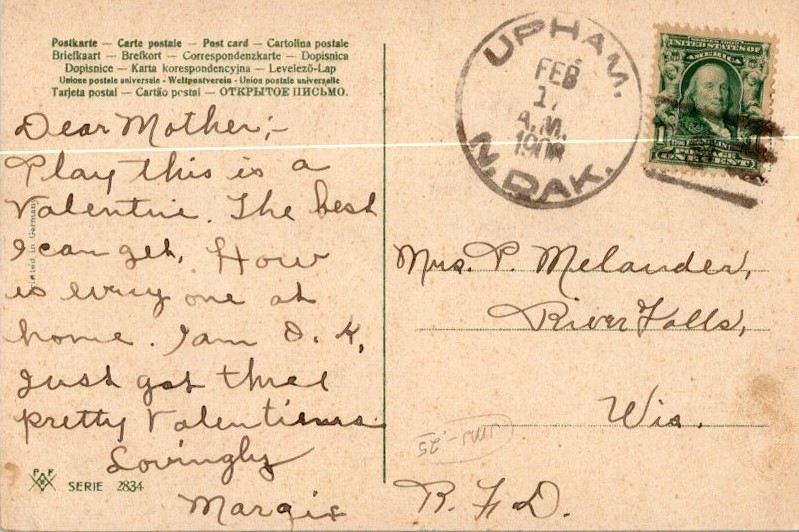 Postkarte — Carte postale — Post card — Cartolina postale
Briefkaart — Brefkort — Correspondenzkarte — Dopisnica
Dopisnice — Karta korespondencyjna — Levelező-Lap
Unione postale universale - Weltpostverein - Union postale universelle
Tarjeta postal — Cartão postal — ОТКРЫТОЕ ПИСЬМО.
Dear Mother;-
Play this is a
Valentine. The best
I can get. How
is every one at
home. I am O.K.
Just got three
pretty Valentines
Lovingly
Margie
Printed in Germany
PF
SERIE 2834
UPHAM.
FEB
17
A.M.
1908
N. DAK.
UNITED STATES OF
AMERICA
1
POSTAGE
ONE CENT
Mrs. P. Melander,
River Falls,
Wis.
R.F.D.